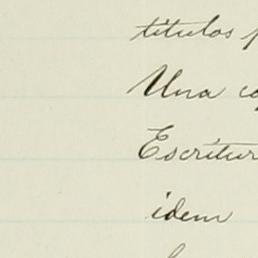 titulos
Una
Escritur
idem